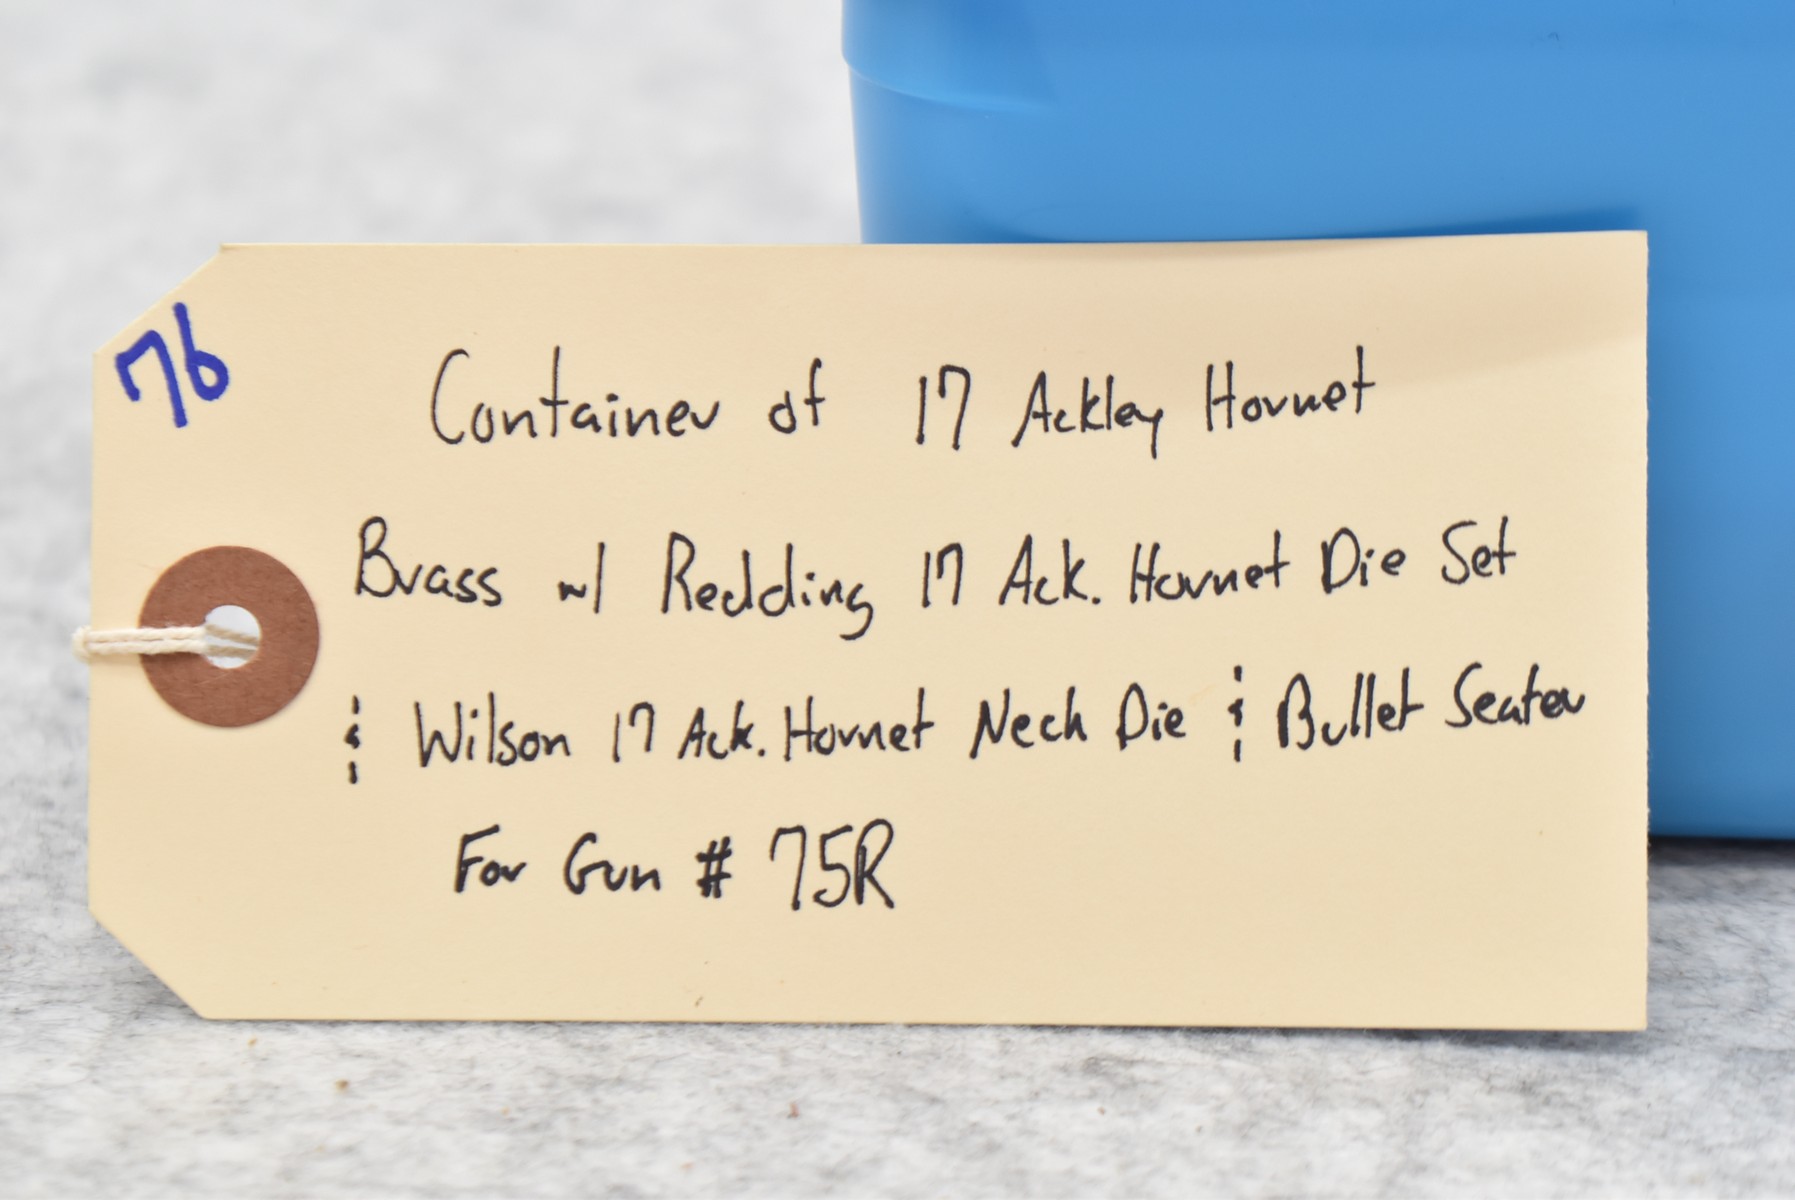 76
Container of 17 Ackley Hornet
Brass w/ Redding 17 Ack. Hornet Die Set
& Wilson 17 Ack. Hornet Neck Die & Bullet Seater
For Gun # 75R